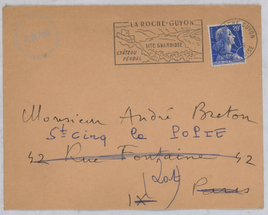 LA ROCHE-GUYON
SITE GRANDIOSE
CHÂTEAU
FÉODAL
Monsieur André Breton
St Cirq la POPIE
42 Rue Fontaine 42
(Lot)
IX
Paris